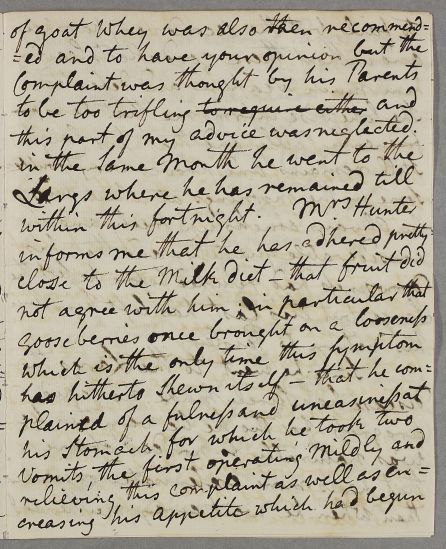 of goat whey was also then recommend=
=ed and to have your opinion but the
Complaint was thought by his Parents
to be too trifling to require either and
this part of my advice was neglected.
in the same Month he went to the
Largs where he has remained till
within this fortnight. Mrs Hunter
informs me that he has adhered pretty
close to the Milk diet – that fruit did
not agree with him, in particular that
gooseberries once brought on a looseness
which is the only time this symptom
has hitherto shewn itself – that he com=
plained of a fulness and uneasiness at
his Stomach for which he took two
Vomits, the first operating mildly and
relieving this complaint as well as en=
creasing his appetite which had begun